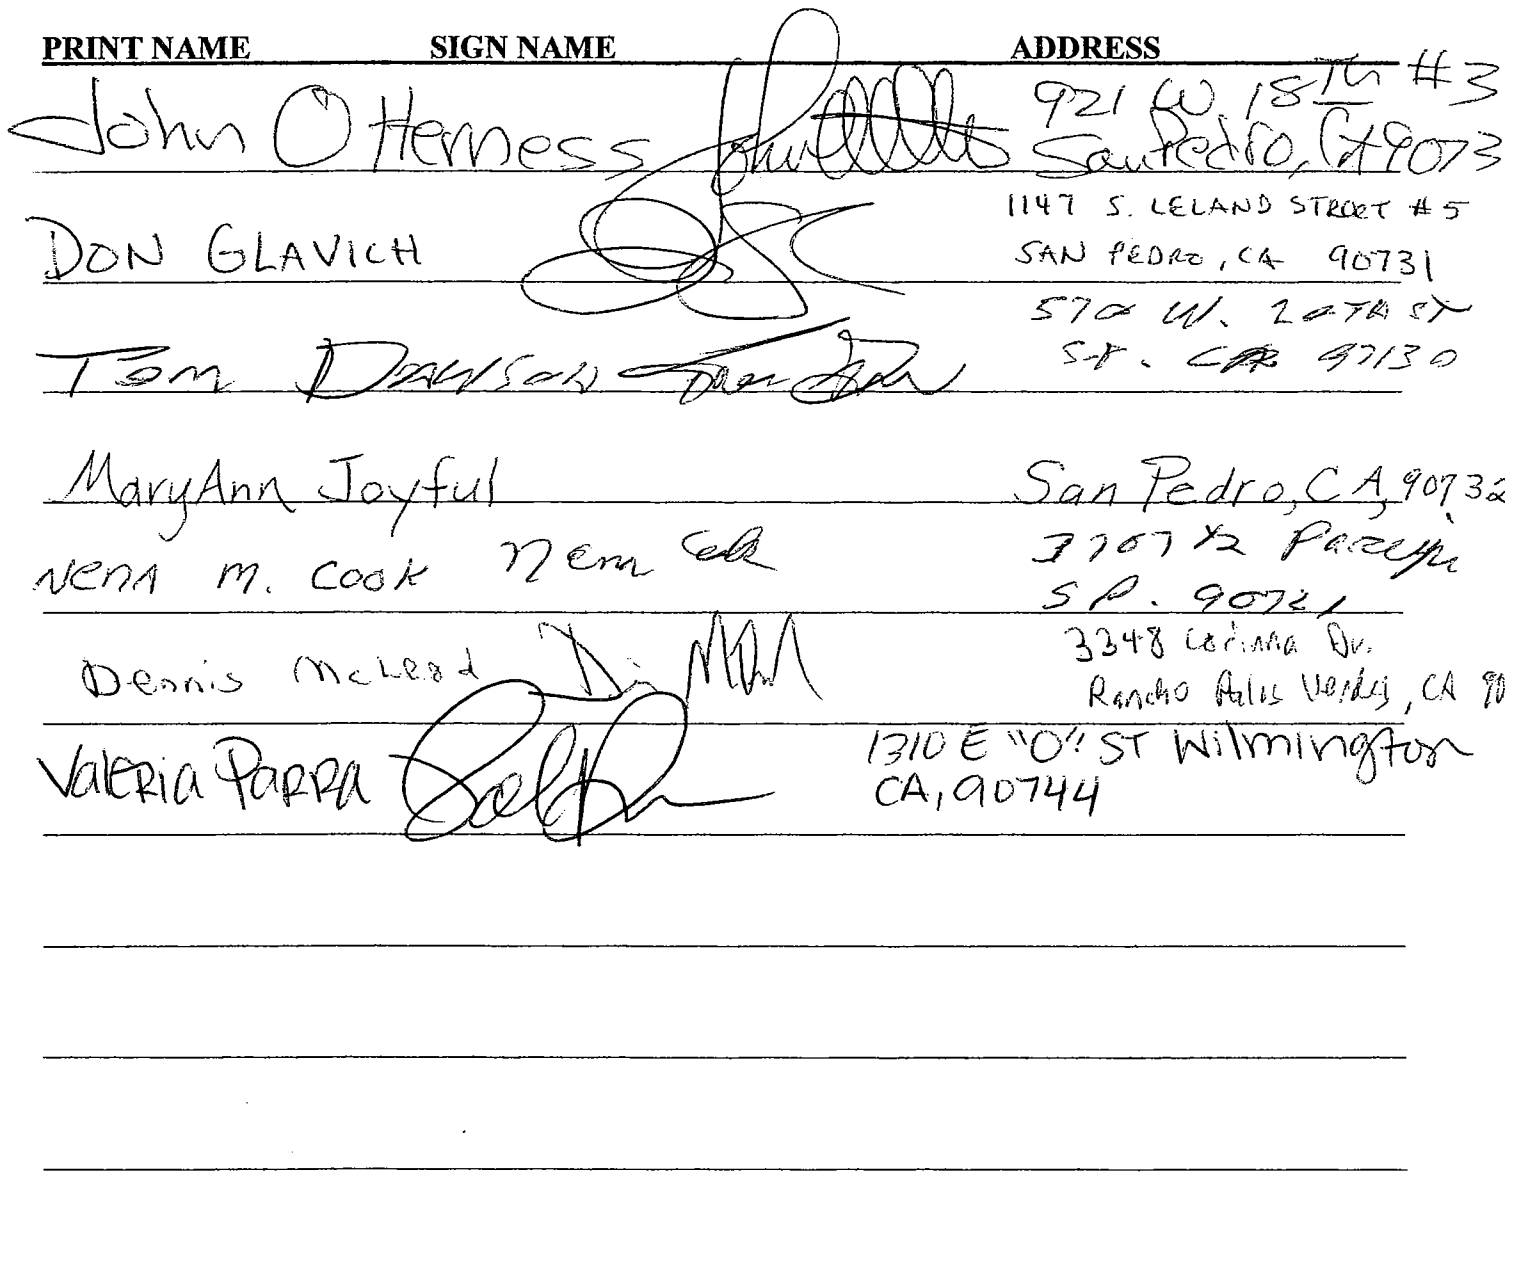 PRINT NAME SIGN NAME ADDRESS
John Otterness 921 W. 18Th #3
San Pedro, CA 9073
DON GLAVICH 1147 S. LELAND STREET #5
SAN PEDRO, CA 90731
Tom Dawson W. 20TH ST
MaryAnn Joyful San Pedro, CA, 90732
Nena M. Cook Nena Cook 3707 1/2
S P.
Dennis McLeod 3348 Corinna Dr.
Rancho Palos Verdes, CA 90
Valeria Parra 1310 E "O" ST Wilmington
CA, 90744